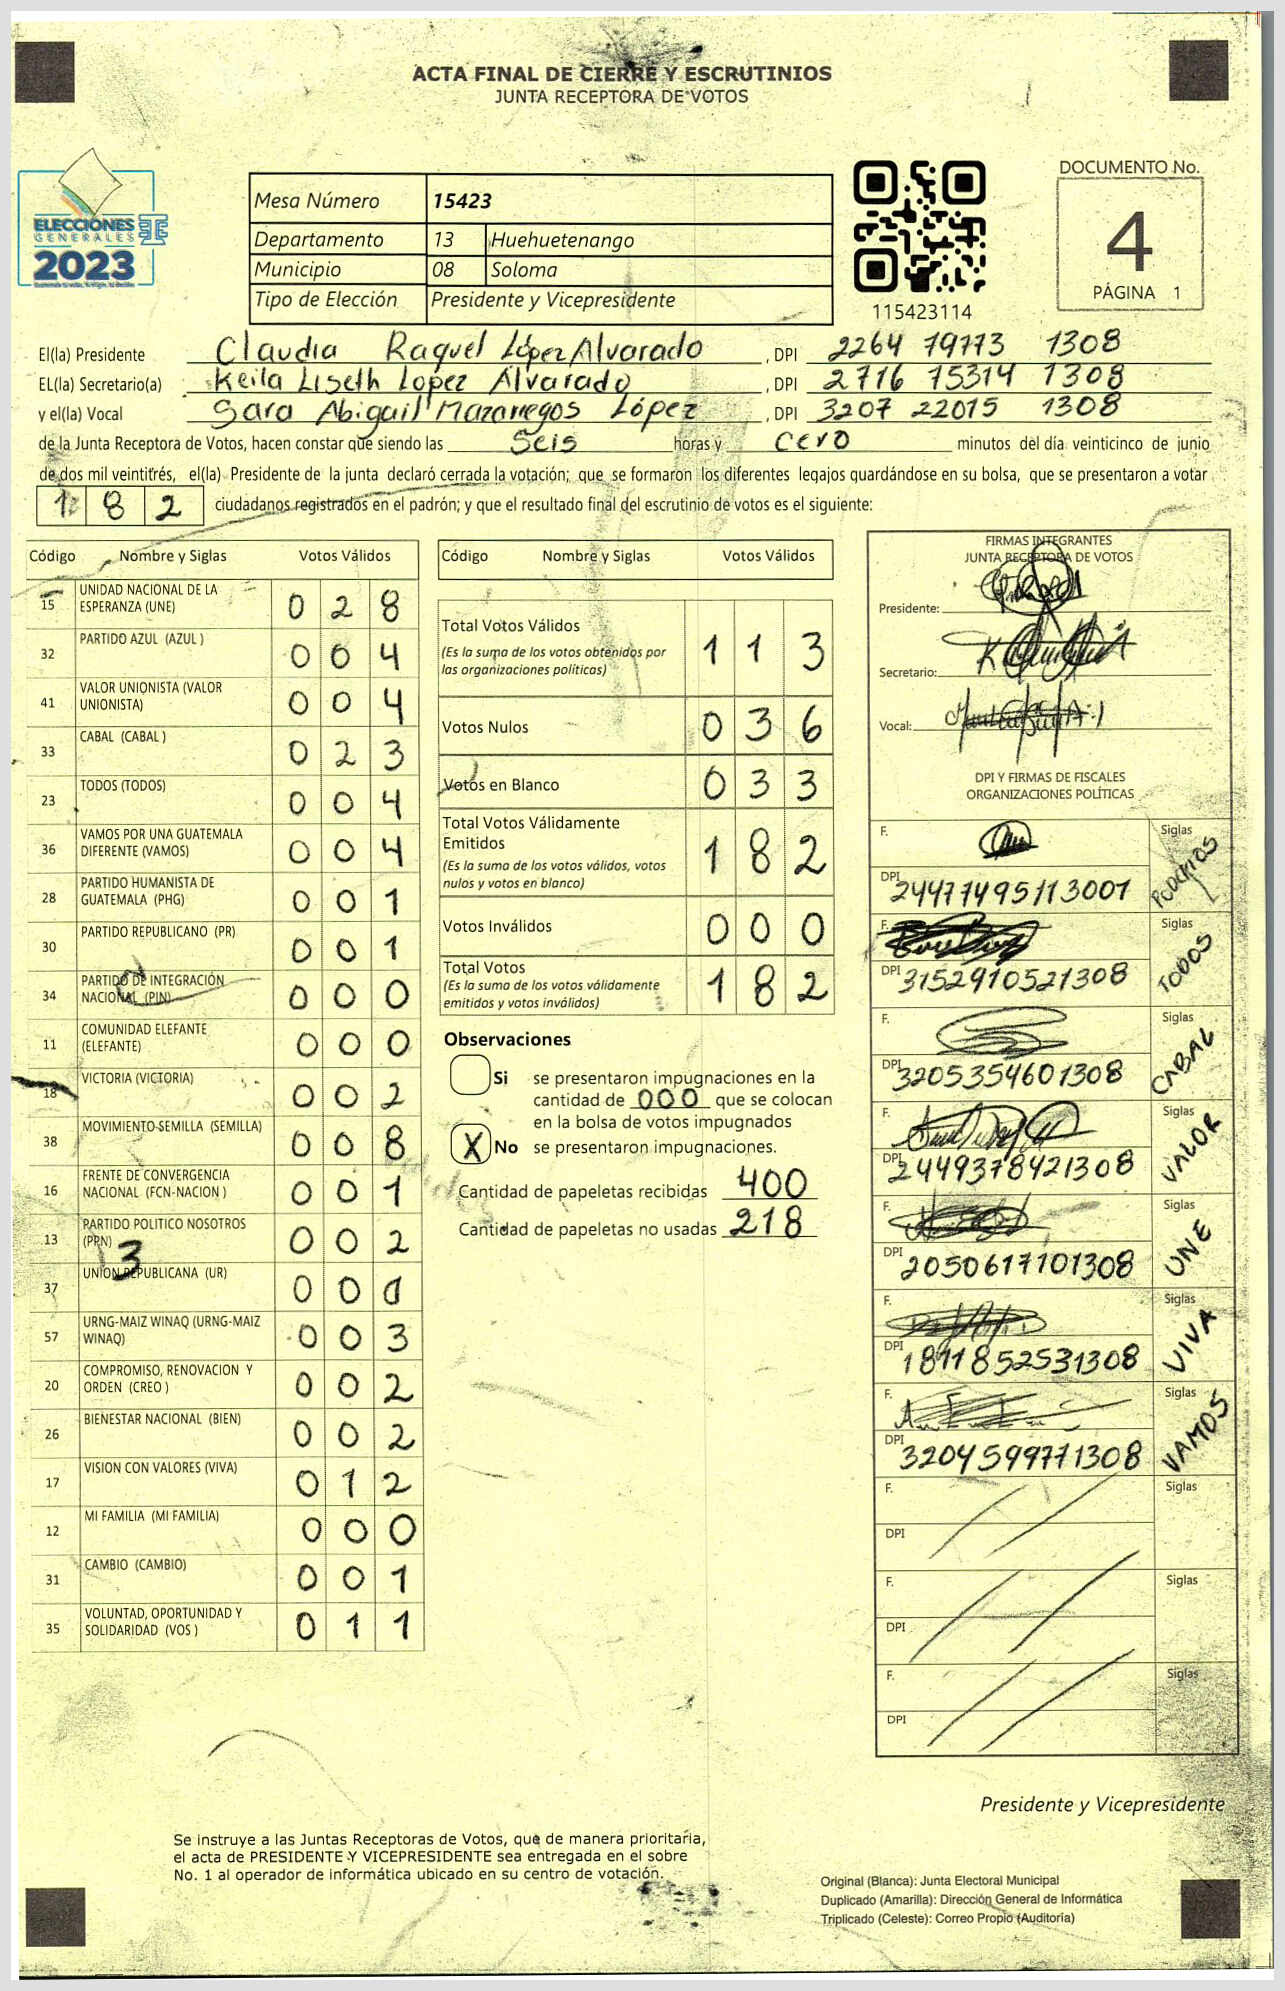 ACTA FINAL DE CIERRE Y ESCRUTINIOS
JUNTA RECEPTORA DE VOTOS
ELECCIONES
GENERALES
2023
Mesa Número 15423
Departamento 13 Huehuetenango
Municipio 08 Soloma
Tipo de Elección Presidente y Vicepresidente
115423114
DOCUMENTO No.
4
PÁGINA 1
El(la) Presidente Claudia Raquel López Alvarado, DPI 2264 79773 1308
EL(la) Secretario(a) Keila Liseth Lopez Alvarado, DPI 2716 75314 1308
y el(la) Vocal Sara Abigail Mazariegos López, DPI 3207 22015 1308
de la Junta Receptora de Votos, hacen constar que siendo las Seis horas y cero minutos del día veinticinco de junio
de dos mil veintitrés, el(la) Presidente de la junta declaró cerrada la votación; que se formaron los diferentes legajos guardándose en su bolsa, que se presentaron a votar
182 ciudadanos registrados en el padrón; y que el resultado final del escrutinio de votos es el siguiente:
Código Nombre y Siglas Votos Válidos
15 UNIDAD NACIONAL DE LA ESPERANZA (UNE) 028
32 PARTIDO AZUL (AZUL ) 004
41 VALOR UNIONISTA (VALOR UNIONISTA) 004
33 CABAL (CABAL ) 023
23 TODOS (TODOS) 004
36 VAMOS POR UNA GUATEMALA DIFERENTE (VAMOS) 004
28 PARTIDO HUMANISTA DE GUATEMALA (PHG) 001
30 PARTIDO REPUBLICANO (PR) 001
34 PARTIDO DE INTEGRACIÓN NACIONAL (PIN) 000
11 COMUNIDAD ELEFANTE (ELEFANTE) 000
18 VICTORIA (VICTORIA) 002
38 MOVIMIENTO SEMILLA (SEMILLA) 008
16 FRENTE DE CONVERGENCIA NACIONAL (FCN-NACION ) 001
13 PARTIDO POLITICO NOSOTROS (PPN) 002
3
37 UNION REPUBLICANA (UR) 00
57 URNG-MAIZ WINAQ (URNG-MAIZ WINAQ) 003
20 COMPROMISO, RENOVACION Y ORDEN (CREO ) 002
26 BIENESTAR NACIONAL (BIEN) 002
17 VISION CON VALORES (VIVA) 012
12 MI FAMILIA (MI FAMILIA) 000
31 CAMBIO (CAMBIO) 001
35 VOLUNTAD, OPORTUNIDAD Y SOLIDARIDAD (VOS ) 011
Código Nombre y Siglas Votos Válidos
Total Votos Válidos 113
(Es la suma de los votos obtenidos por
las organizaciones políticas)
Votos Nulos 036
Votos en Blanco 033
Total Votos Válidamente
Emitidos 182
(Es la suma de los votos válidos, votos
nulos y votos en blanco)
Votos Inválidos 000
Total Votos 182
(Es la suma de los votos válidamente
emitidos y votos inválidos)
Observaciones
Si se presentaron impugnaciones en la
cantidad de 000 que se colocan
en la bolsa de votos impugnados
X No se presentaron impugnaciones.
Cantidad de papeletas recibidas 400
Cantidad de papeletas no usadas 218
FIRMAS INTEGRANTES
JUNTA RECEPTORA DE VOTOS
Presidente:
Secretario:
Vocal:
DPI Y FIRMAS DE FISCALES
ORGANIZACIONES POLÍTICAS
F. Siglas
DPI 24477495113001
F. Siglas TODOS
DPI 3152910521308
F. Siglas CABAL
DPI 3205354601308
F. Siglas VALOR
DPI 2449378421308
F. Siglas UNE
DPI 2050617101308
F. Siglas VIVA
DPI 1811852531308
F. Siglas VAMOS
DPI 3204599771308
F. Siglas
DPI
F. Siglas
DPI
F. Siglas
DPI
Presidente y Vicepresidente
Se instruye a las Juntas Receptoras de Votos, que de manera prioritaria,
el acta de PRESIDENTE Y VICEPRESIDENTE sea entregada en el sobre
No. 1 al operador de informática ubicado en su centro de votación.
Original (Blanca): Junta Electoral Municipal
Duplicado (Amarilla): Dirección General de Informática
Triplicado (Celeste): Correo Propio (Auditoría)